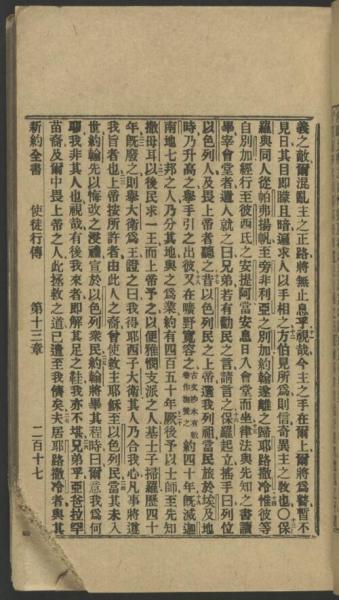 義之敵爾混亂主之正路將無止息乎視哉今主之手在爾上爾將爲瞽暫不
見日其目即矇且暗遍求人以手相之方伯見所爲則信奇異主之敎也○保
羅與同人從帕弗揚帆至旁非利亞之別加約翰遂離之歸耶路撒冷惟彼等
自別加經行至彼西氐之安提阿當安息日入會堂而坐律法與先知之書讀
畢宰會堂者遣人就之曰兄弟若有勸民之言請言之保羅起立搖手曰列位
以色列人及畏上帝者聽之昔以色列民之上帝選我列祖當民旅於埃及地
時乃升高之舉手引之出彼又在曠野寬容之約四十年旣滅迦
南地七邦之人乃分其地與之爲業約有四百五十年厥後予以士師至先知
撒母耳以後民求一王而上帝予之以便雅憫支派之人基士子掃羅歷四十
年旣廢之則舉大衛爲王證之曰我得耶西子大衛其人乃合我心凡事將遵
我旨者也上帝按所許者由此人之裔曾使救主耶穌至以色列民當其未入
世約翰先以悔改之浸禮宣於以色列衆民約翰將畢其程時曰爾意我爲何
我非其人也視哉有後我來者即解其足之鞋我亦不堪兄弟乎亞伯拉罕
苗裔及爾中畏上帝之人此拯救之道已遣至我儕矣夫居耶路撒冷者與其
新約全書 使徒行傳 第十三章 二百十七